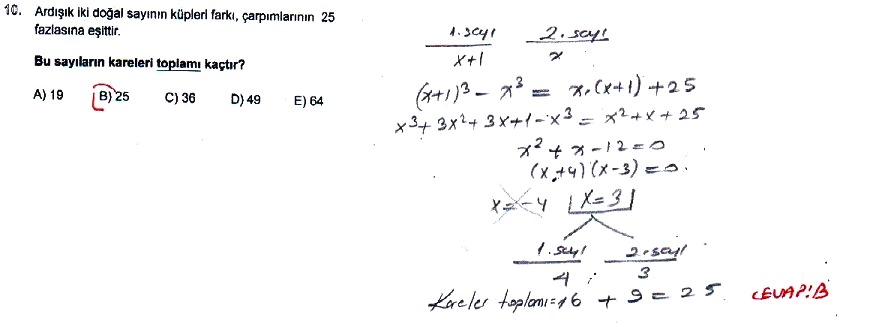 10. Ardışık iki doğal sayının küpleri farkı, çarpımlarının 25
fazlasına eşittir.
Bu sayıların kareleri toplamı kaçtır?
A) 19 B) 25 C) 36 D) 49 E) 64
1. sayı 2. sayı
x+1 x
(x+1)³ - x³ = x.(x+1) +25
x³+ 3x²+ 3x+1-x³ = x²+x+25
x² + x -12=0
(x+4)(x-3)=0.
x=-4 x=3
1. sayı 2. sayı
4 ; 3
Kareler toplamı=16 + 9 = 25 CEVAP:B